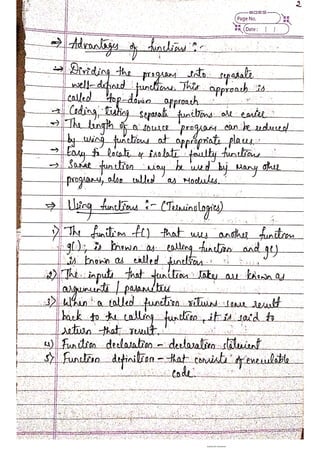 2
Page No.
Date: | |
⇒ Advantages of functions :-
→ Dividing the program into separate
well-defined functions. This approach is
called top-down approach
→ Coding, testing separate functions are easier
→ The length of a source program can be reduced
by using functions at appropriate places.
→ Easy to locate & isolate faulty functions
→ Same function may be used by many other
programs, also called as modules.
⇒ Using functions :- (Terminologies)
1) The function f() that uses another function
g(), is known as calling function and g()
is known as called function
2) The inputs that function takes are known as
arguments / parameters
3) When a called function returns some result
back to the calling function, it is said to
return that result.
4) Function declaration - declaration statement
5) Function definition - that consists of executable
code.